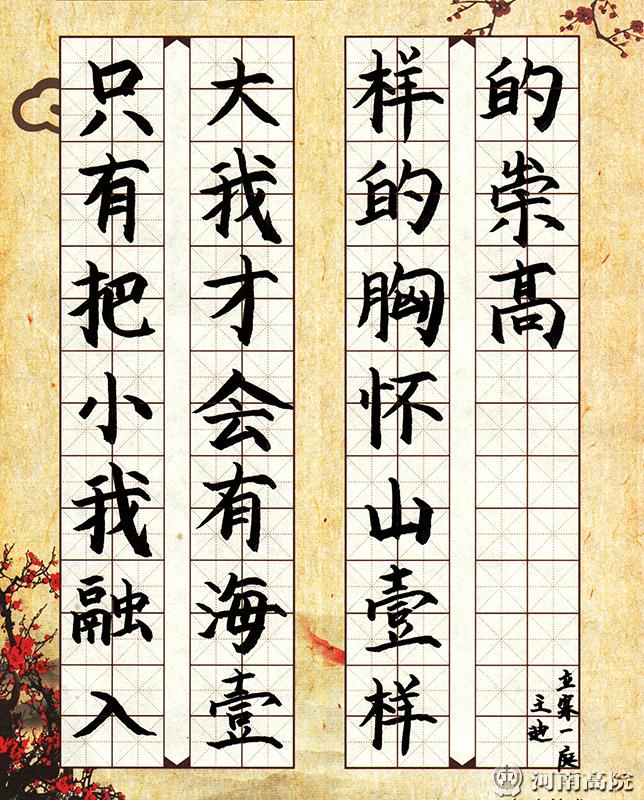 只有把小我融入
大我才会有海壹
样的胸怀山壹样
的崇高
立案一庭
王迪
河南高院